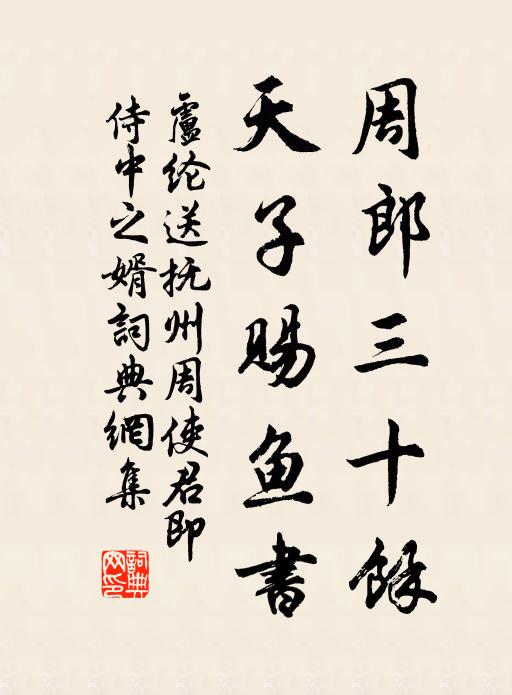 周郎三十餘
天子赐鱼書
盧纶送抚州周使君即
侍中之婿詞典網集
詞典
网印